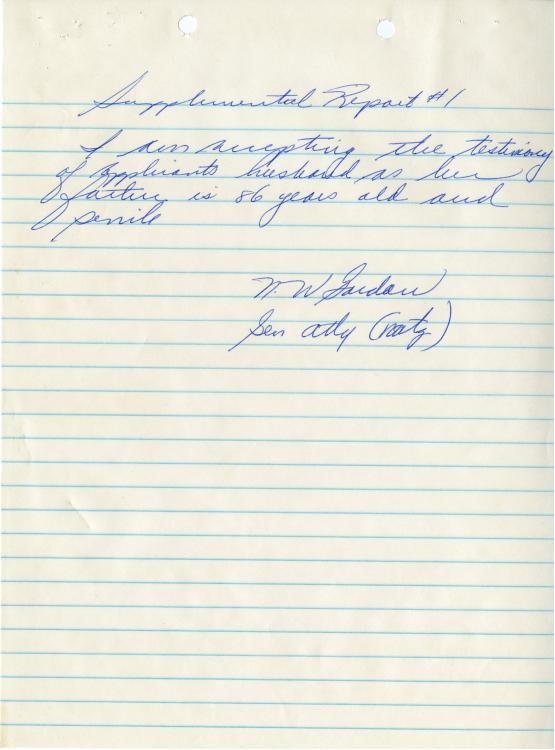 Supplemental Report #1
I am accepting the testimony
of applicants husband as her
father is 86 years old and
senile
W. W Gordon
Gen Atty (Natz)